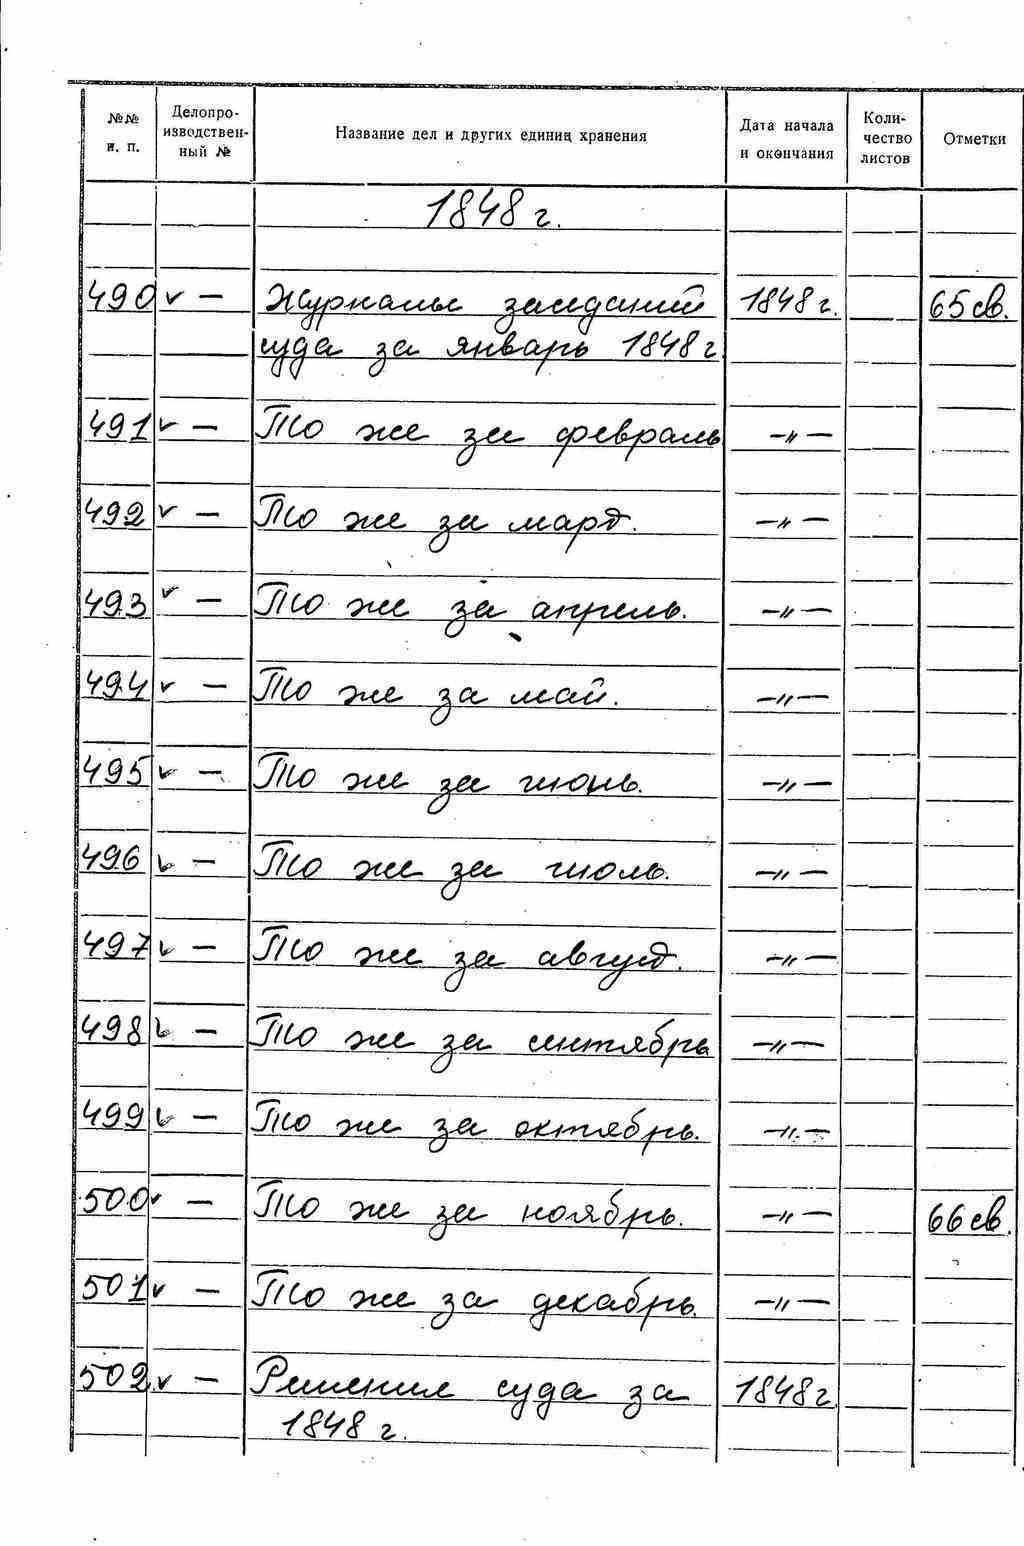 №№ п. п. Делопроизводственный № Название дел и других единиц хранения Дата начала и окончания Количество листов Отметки
1848 г.
490 ✓ — Журналы заседаний 1848 г. 65 св.
суда за январь 1848 г
491 ✓ — То же за февраль —„—
492 ✓ — То же за март. —„—
493 ✓ — То же за апрель. —„—
494 ✓ — То же за май. —„—
495 ✓ — То же за июнь. —„—
496 ✓ — То же за июль. —„—
497 ✓ — То же за август. —„—
498 ✓ — То же за сентябрь —„—
499 ✓ — То же за октябрь. —„—
500 ✓ — То же за ноябрь. —„— 66 св.
501 ✓ — То же за декабрь. —„—
502 ✓ — Решения суда за 1848 г.
1848 г.